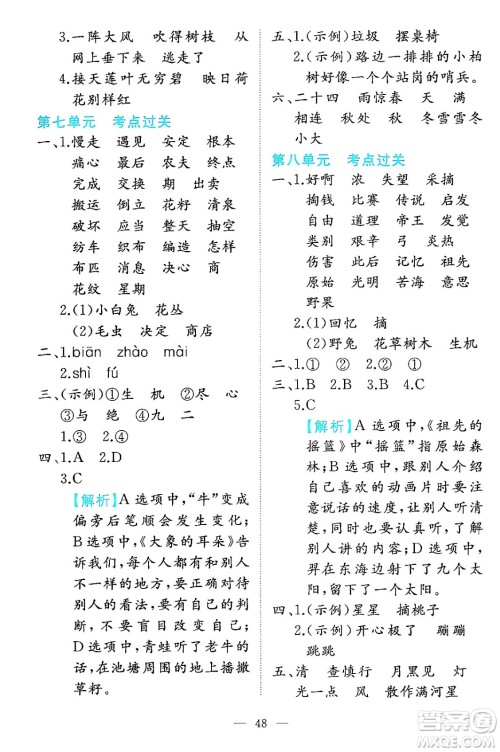 3.一阵大风　吹得树枝　从
网上垂下来　逃走了
4.接天莲叶无穷碧　映日荷
花别样红
第七单元　考点过关
一、1.慢走　遇见　安定　根本
痛心　最后　农夫　终点
完成　交换　可是　青草
搬运　图纸　花籽　清泉
破坏　应当　整天　抽空
纺车　织布　编造　怎样
布匹　消息　商店　决心
花纹　星期
2.(1)小白兔　花丛
(2)毛虫　决定　商店
二、1.biān　zhào　mài
2.shì　fú
三、(示例)①生　机　②尽　心
③与　绝　④九　二
1.①　2.④
四、1.A　2.D
3.C
【解析】A 选项中,“牛”变成
偏旁后笔顺会发生变化;
B选项中,《大象的耳朵》告
诉我们,每个人都有和别人
不一样的地方,要正确对待
别人的看法,要有自己的判
断,不要盲目改变自己;
D选项中,青蛙听了老牛的
话,在池塘周围的地里播撒
草籽。
五、1.(示例)垃圾　摆桌椅
2.(示例)路边一排排的小柏
树好像一个个站岗的哨兵。
六、二十四　雨惊春　天　满
相连　秋处　寒霜　冬雪雪冬
小大
第八单元　考点过关
一、1.好啊　浓　失望　采摘
掏钱　以后　比赛　传说　启发
自由　道理　帝王　发觉
类别　艰辛　弓　炎热
伤害　此后　记忆　祖先
原始　光明　苦海　值日
野果
2.(1)回忆　摘
(2)野兔　花草树木　生机
二、1.③　2.①　3.②
三、1.B　2.B　3.A　4.C
5.C
【解析】A 选项中,《祖先的
摇篮》中“摇篮”指原始森
林;B选项中,向同学讲述
自己喜欢的动画片时要
注意说清楚,如果别人没听清
楚,可以耐心地再说一遍。
同时,也要认真听,了解
别人讲的内容;D选项中,
羿在东海边射下了九个太
阳,留下了一个太阳。
四、1.(示例)星星　摘桃子
2.(示例)开心极了　蹦蹦
跳跳
五、清　查慎行　月黑见　灯
光一点　风　散作满河星
48